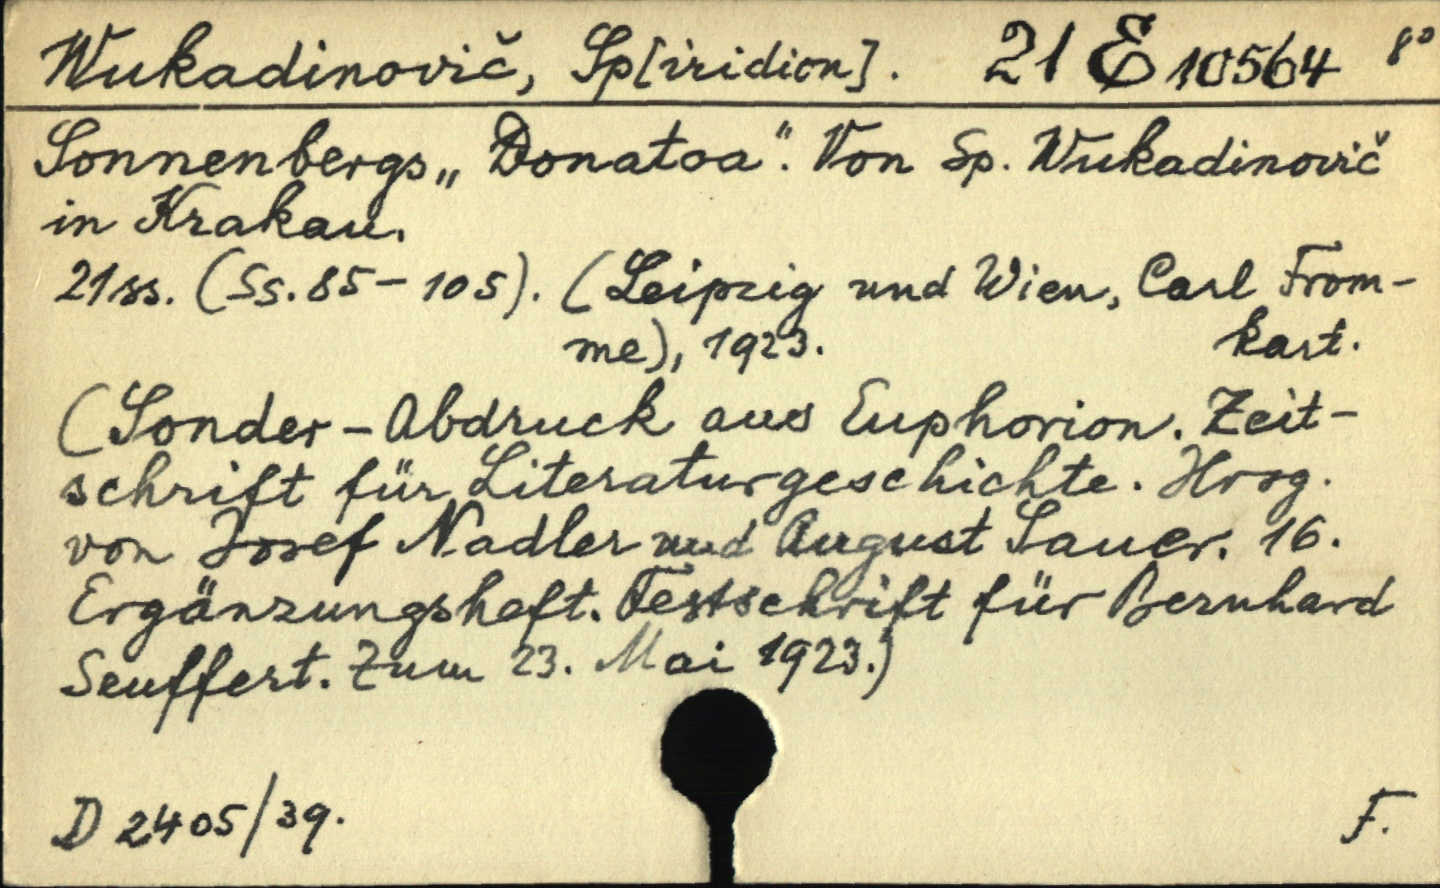 Wukadinovič, Sp[iridion]. 21 E 10564 8°
Sonnenbergs „Donatoa“. Von Sp. Wukadinovič
in Krakau.
21 ss. (Ss. 85-105). (Leipzig und Wien, Carl From-
me), 1923. kart.
(Sonder-Abdruck aus Euphorion. Zeit-
schrift für Literaturgeschichte. Hrsg.
von Josef Nadler und August Sauer. 16.
Ergänzungsheft. Festschrift für Bernhard
Seuffert. Zum 23. Mai 1923.)
D 2405/39. F.